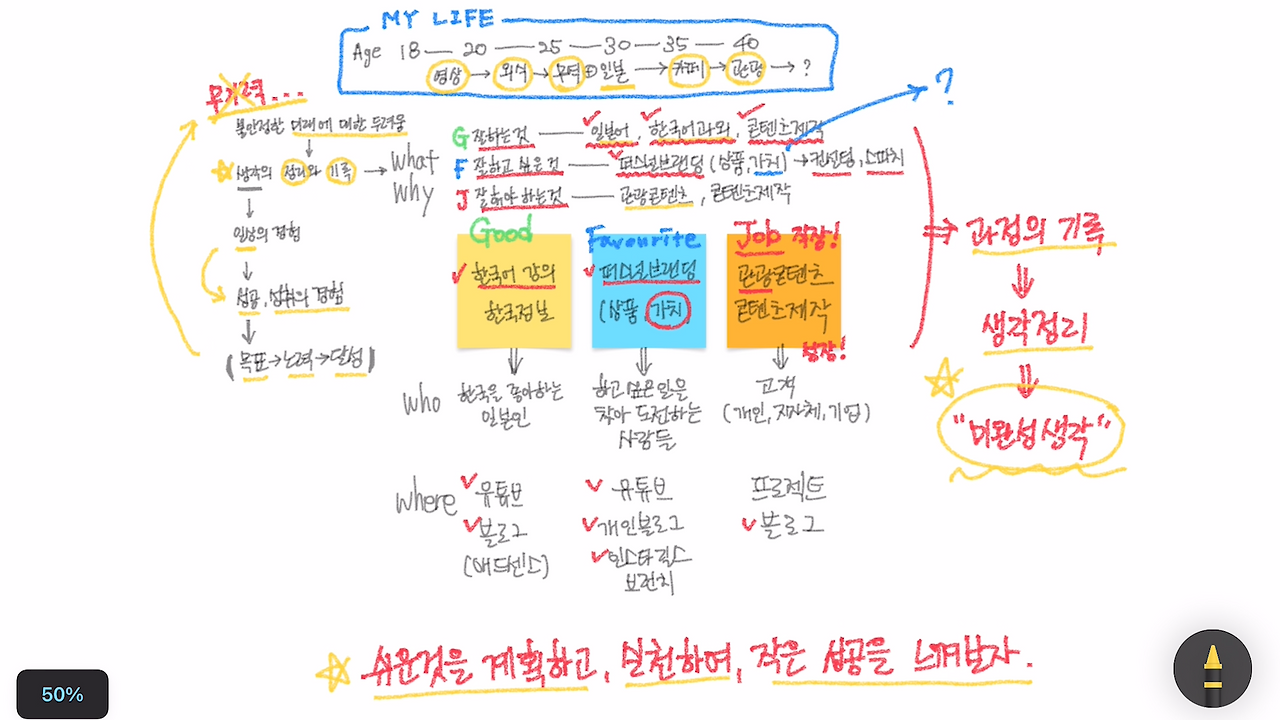 MY LIFE
Age 18 — 20 — 25 — 30 — 35 — 40
영상 → 외식 → 무역 ⊕ 일본 → 카페 → 관광 → ?
무기력...
불안정한 미래에 대한 두려움
생각의 정리와 기록 → what
why
일상의 경험
성공, 성취의 경험
(목표→노력→달성)
G 잘하는것 — 일본어, 한국어과외, 콘텐츠제작
F 잘하고 싶은것 — 퍼스널브랜딩 (상품, 가치) → 컨설팅, 스피치
J 잘해야 하는것 — 관광콘텐츠, 콘텐츠제작
?
Good
한국어 강의
한국정보
Favourite
퍼스널브랜딩
(상품, 가치)
Job 직장!
관광콘텐츠
콘텐츠제작
성장!
who
한국을 좋아하는
일본인
하고 싶은 일을
찾아 도전하는
사람들
고객
(개인, 지자체, 기업)
where
유튜브
블로그
(애드센스)
유튜브
개인블로그
인스타
브런치
프로젝트
블로그
⇒ 과정의 기록
생각정리
"미완성 생각"
쉬운것을 계획하고, 실천하여, 작은 성공을 느껴보자.
50%